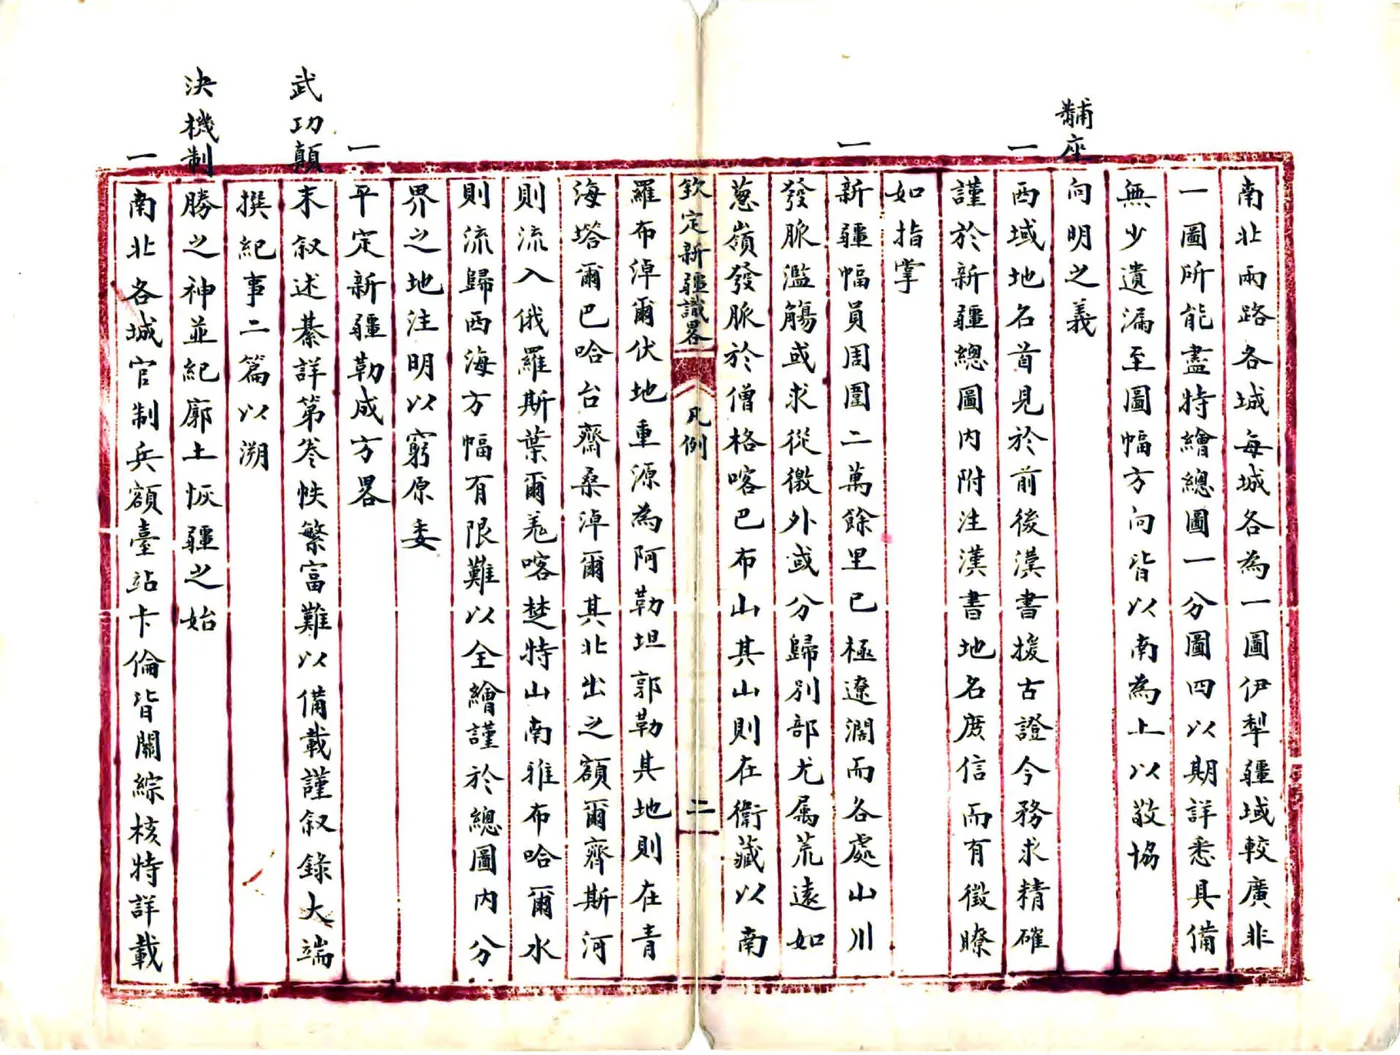 南北兩路各城每城各為一圖伊犁疆域較廣非
一圖所能盡特繪總圖一分圖四以期詳悉具備
無少遺漏至圖幅方向皆以南為上以敬協
黼座向明之義
一西域地名首見於前後漢書援古證今務求精確
謹於新疆總圖內附注漢書地名庶信而有徵瞭
如指掌
一新疆幅員周圍二萬餘里已極遼濶而各處山川
發脈濫觴或求從徼外或分歸別部尤屬荒遠如
蔥嶺發脈於僧格喀巴布山其山則在衛藏以南
欽定新疆識畧 凡例 二
羅布淖爾伏地重源為阿勒坦郭勒其地則在青
海塔爾巴哈台齋桑淖爾其北出之額爾齊斯河
則流入俄羅斯葉爾羌喀楚特山南雅布哈爾水
則流歸西海方幅有限難以全繪謹於總圖內分
界之地注明以窮原委
一平定新疆勒成方畧
武功顛末叙述綦詳第卷帙繁富難以備載謹叙錄大端
撰紀事二篇以溯
決機制勝之神並紀廓土恢疆之始
一南北各城官制兵額臺站卡倫皆關綜核特詳載